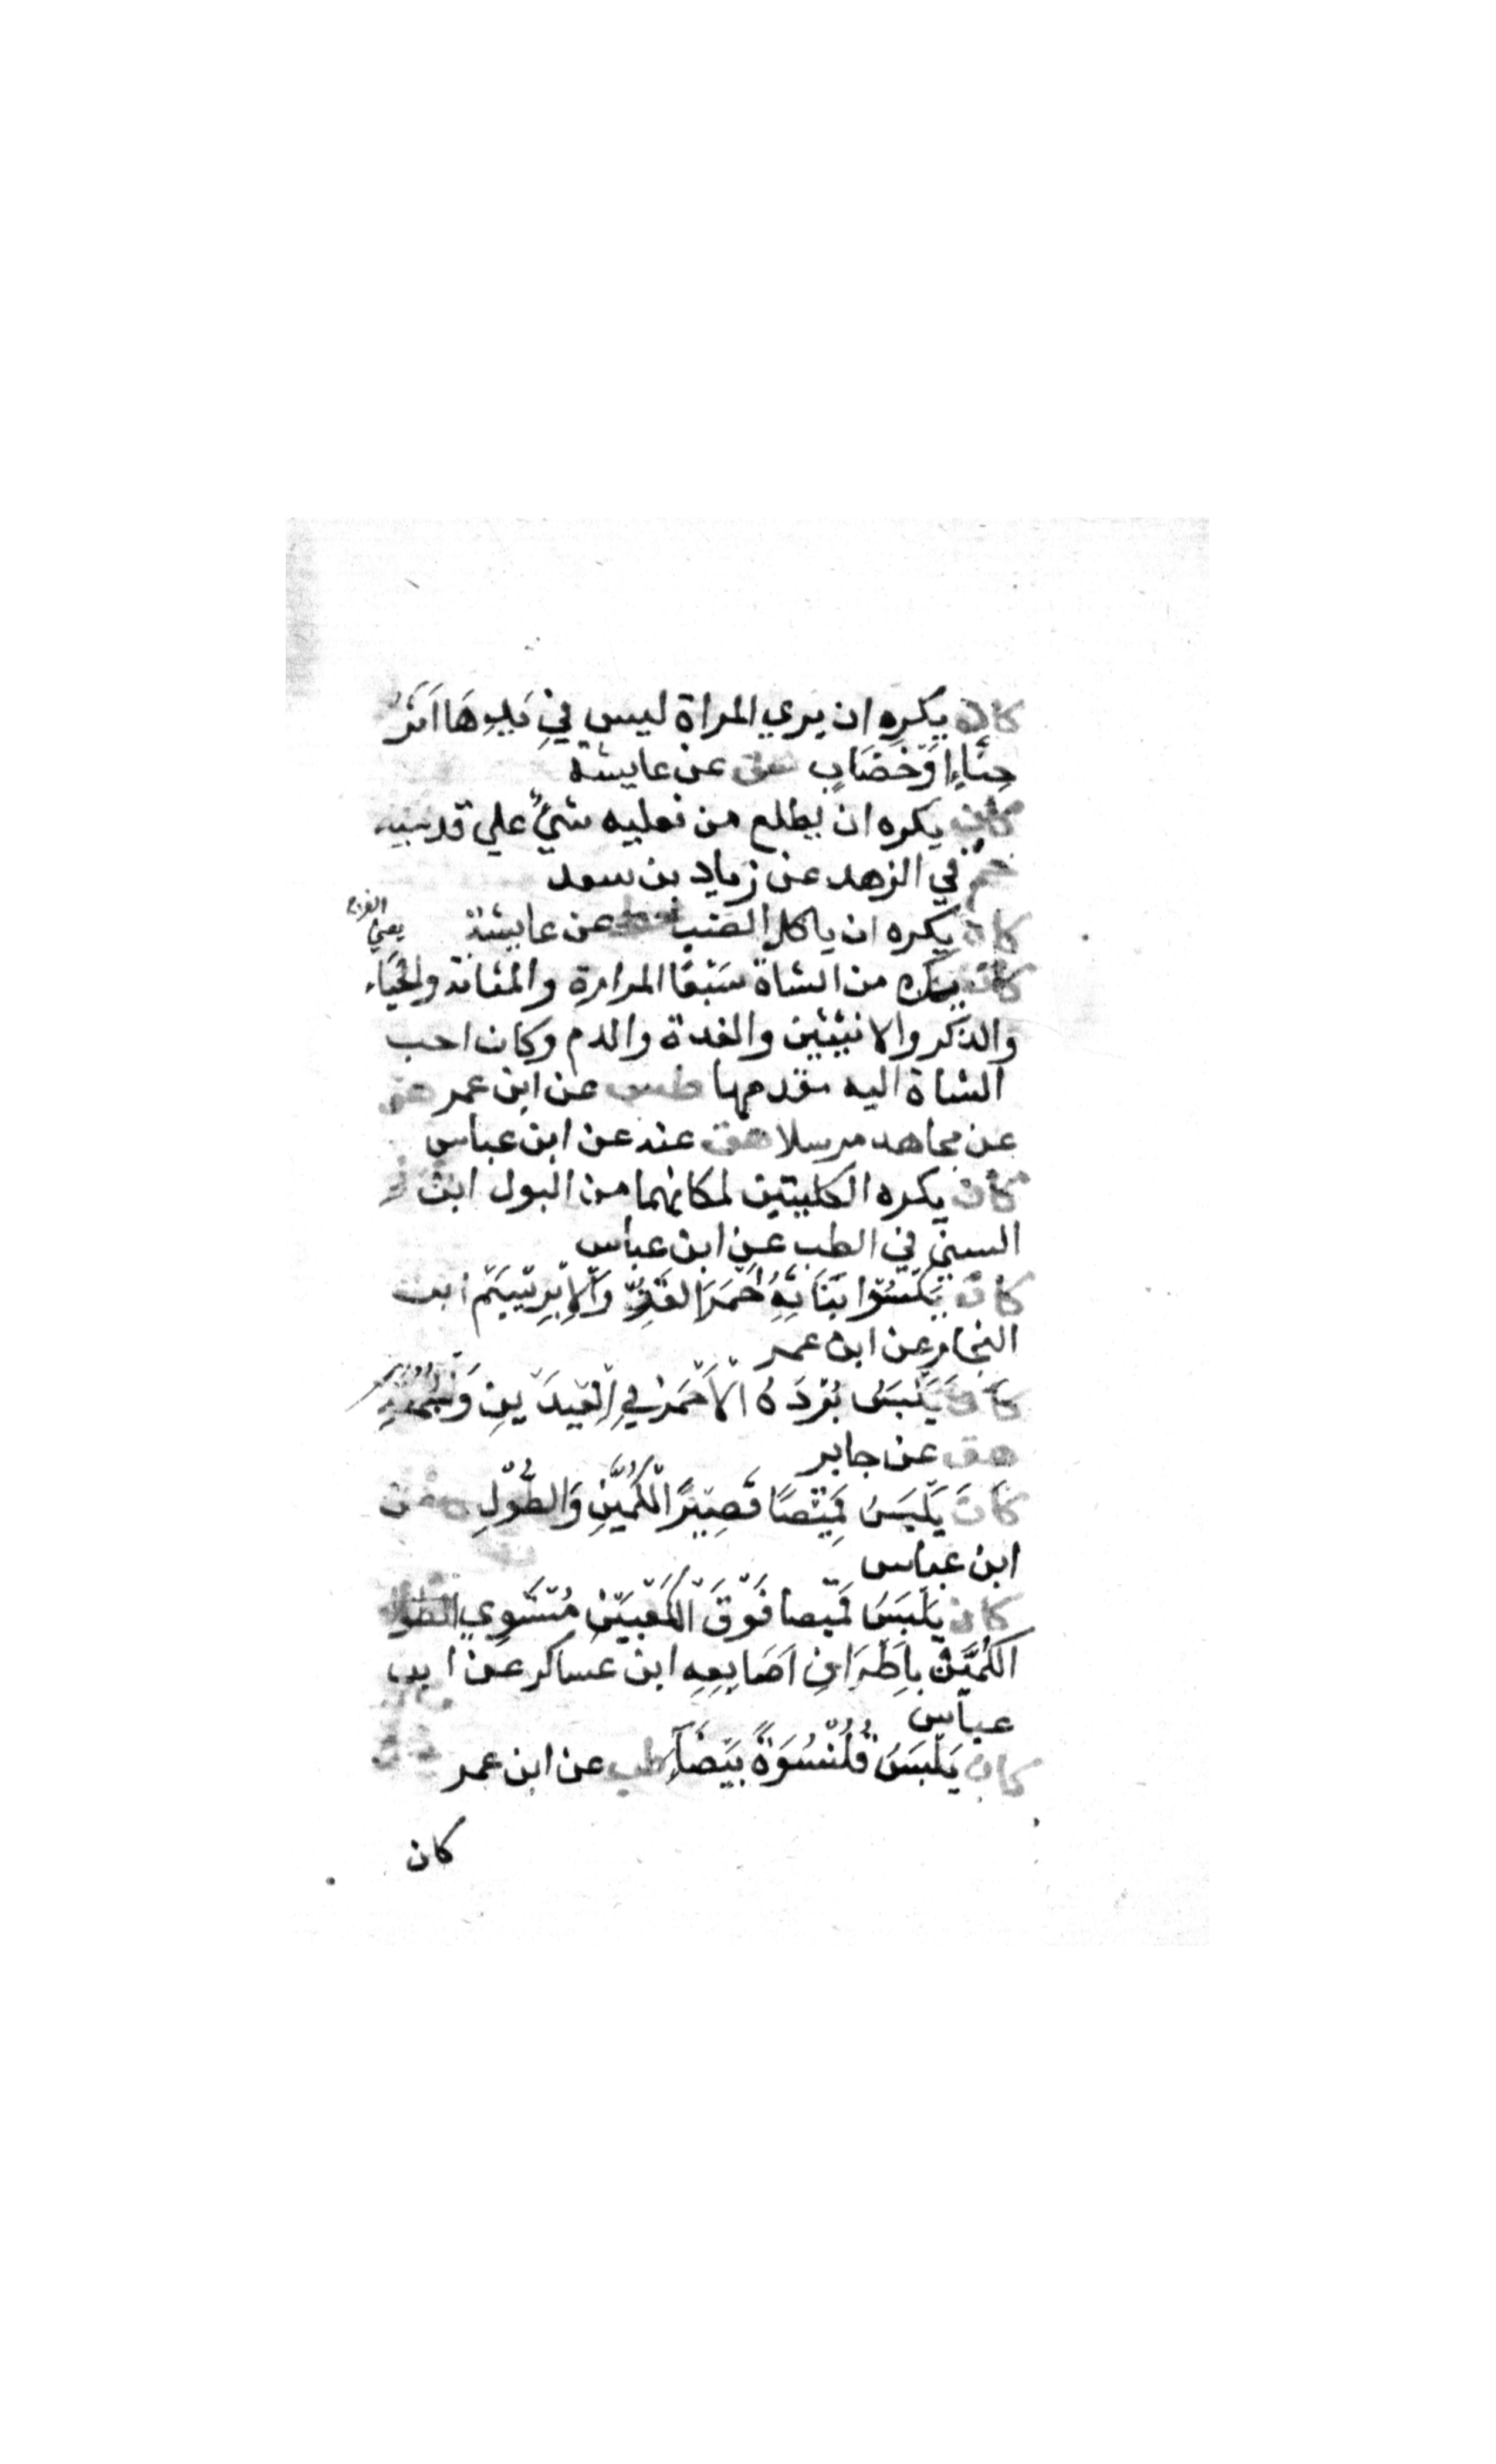 كان يكره ان يري المراة ليس في يَدِهَا اَثَرُ
حِنَّاءٍ اَوْ خِضَابٍ هق عن عايشة
كان يكره ان يطلع من نعليه شيءٌ علي قدميه
حم في الزهد عن زياد بن سعد
كان يكره ان ياكل الضب خط عن عايشة
يعني الفرج
كان يكره من الشاة سَبْعًا المرارة والمثانة والحَيَاء
والذكر والانثيين والغدة والدم وكان احب
الشاة اليه مقدمها طس عن ابن عمر هق
عن مجاهد مرسلا هق عنه عن ابن عباس
كان يكره الكليتين لمكانهما من البول ابن
السني في الطب عن ابن عباس
كان يَكْسُوا بَنَاتِهِ خُمَرَ القَزِّ وَالْاِبْرِيْسِيَمِ ابن
النجار عن ابن عمر
كان يَلْبَسُ بُرْدَهُ الْاَحْمَرَ فِي الْعِيْدَيْنِ وَالْجُمُعَةِ
هق عن جابر
كَانَ يَلْبَسُ قَمِيْصًا قَصِيْرَ الْكُمَّيْنِ وَالطُّوْلِ ه عن
ابن عباس
كان يَلْبَسُ قَمِيْصا فَوْقَ الْكَعْبَيْنِ مُسْتَوِي
الكُمَّيْنِ بِاَطْرَافِ اَصَابِعِهِ ابن عساكر عن ابن
عباس
كان يَلْبَسُ قُلُنْسُوَةً بَيْضَآءَ طب عن ابن عمر
كان